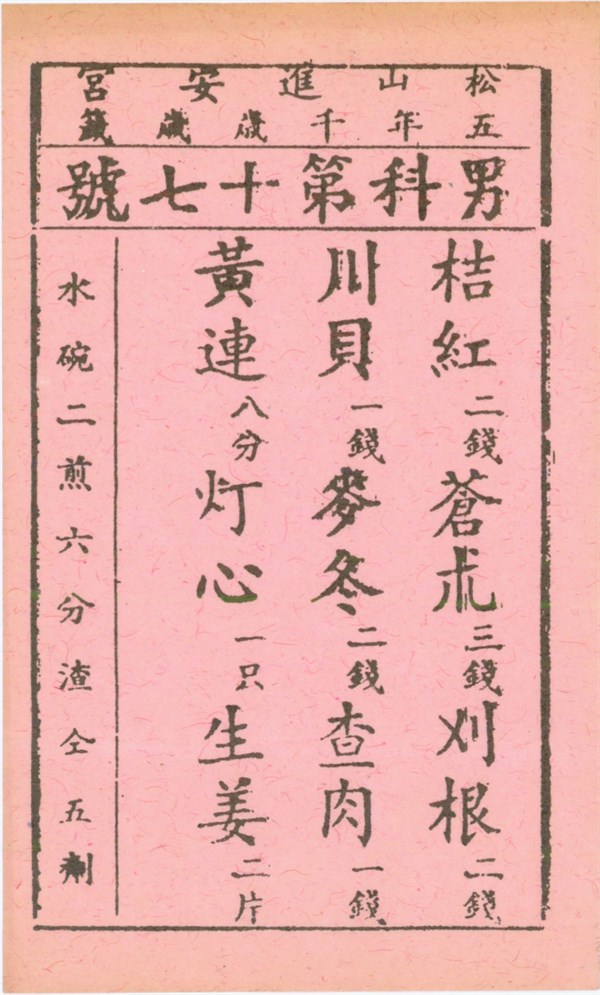 松山進安宮
五年千歲歲籤
男科第十七號
桔紅二錢蒼朮三錢刈根二錢
川貝一錢麥冬二錢查肉一錢
黃連八分灯心一只生姜二片
水碗二煎六分渣仝五劑